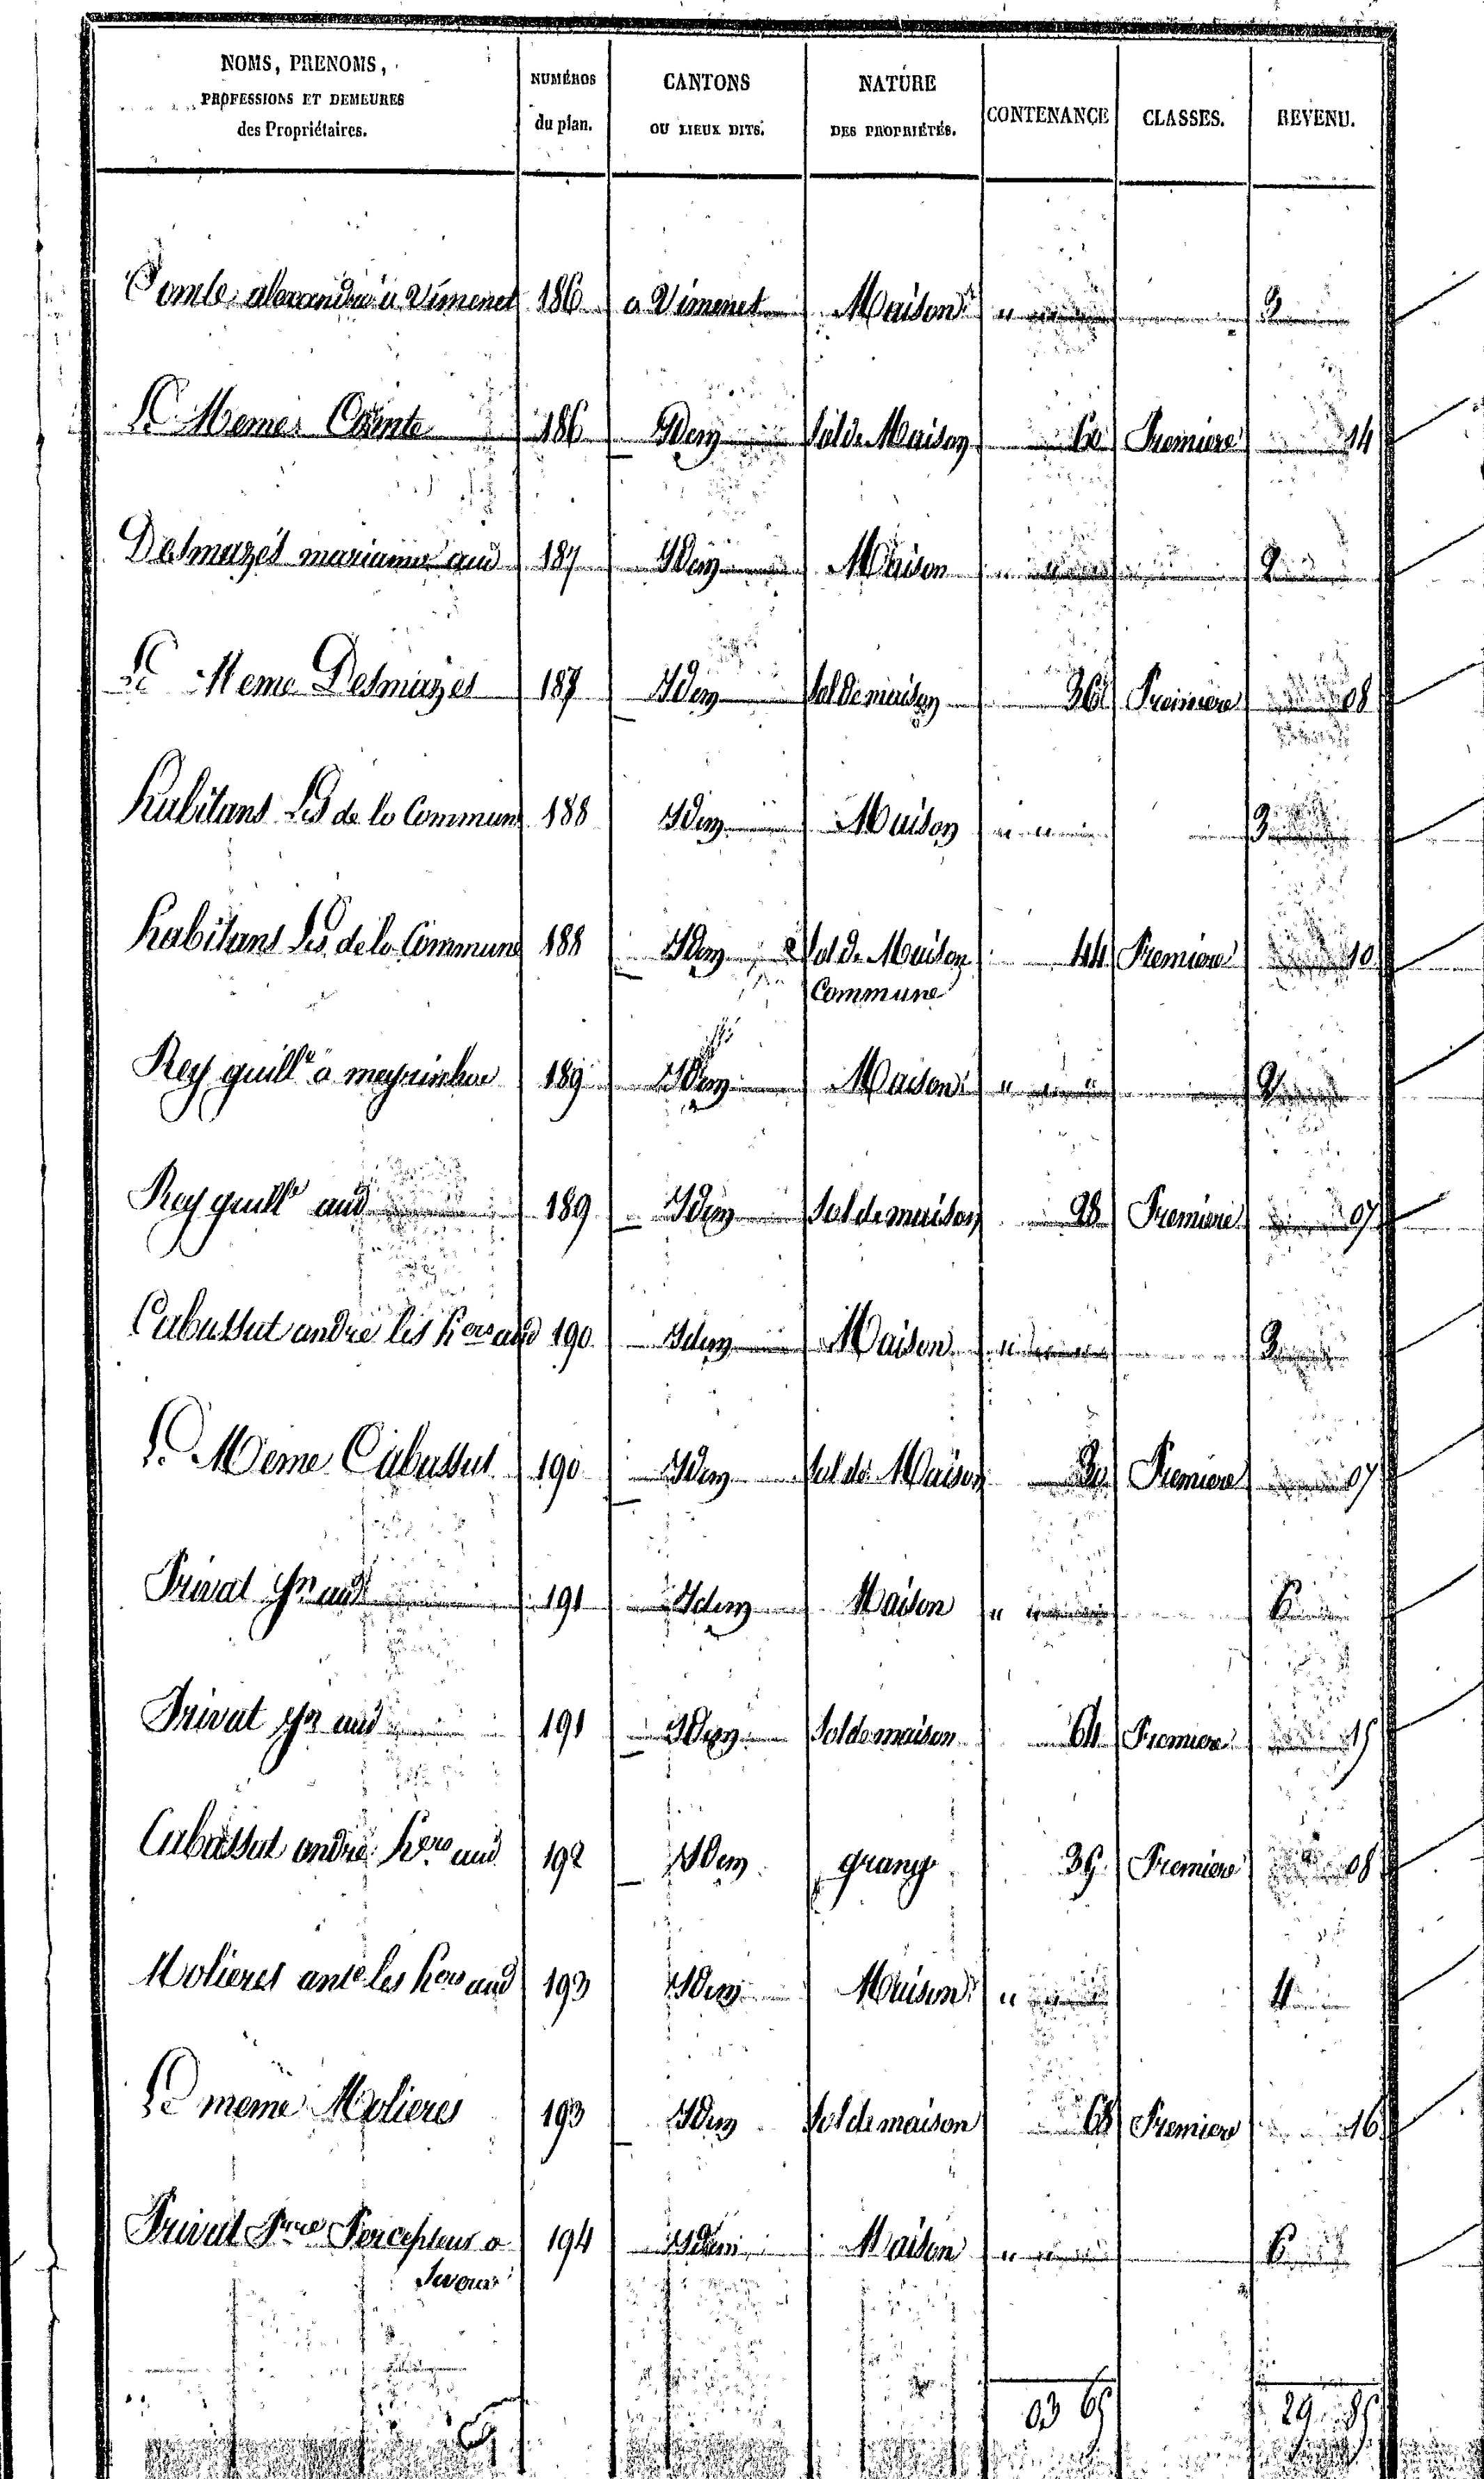 NOMS, PRENOMS,
PROFESSIONS ET DEMEURES
des Propriétaires.
NUMÉROS
du plan.
CANTONS
OU LIEUX DITS.
NATURE
DES PROPRIÉTÉS.
CONTENANCE
CLASSES.
REVENU.
Comte alexandre à Vimenet 186 a Vimenet Maison " " 3
Le Meme Comte 186 Idem Sol de Maison 60 Premiere 14
Desmazes marianne aud 187 Idem Maison " " 2
Le Meme Desmazes 187 Idem Sol de maison 36 Premiere 08
habitans Les de la Commune 188 Idem Maison " " 3
habitans Les de la Commune 188 Idem Sol de Maison 44 Premiere 10
Commune
Rey guille a meyrinhac 189 Idem Maison " " 2
Rey guille aud 189 Idem Sol de maison 28 Premiere 07
Cabassut andre les hers aud 190 Idem Maison " " 3
Le Meme Cabassut 190 Idem Sol de Maison 30 Premiere 07
Privat Jn aud 191 Idem Maison " " 6
Privat Jn aud 191 Idem Sol de maison 64 Premiere 15
Cabassut andre hers aud 192 Idem grange 35 Premiere 08
Molieres ante les hers aud 193 Idem Maison " " 4
Le meme Molieres 193 Idem Sol de maison 68 Premiere 16
Privat Percepteur a 194 Idem Maison " " 6
03 65 29 85